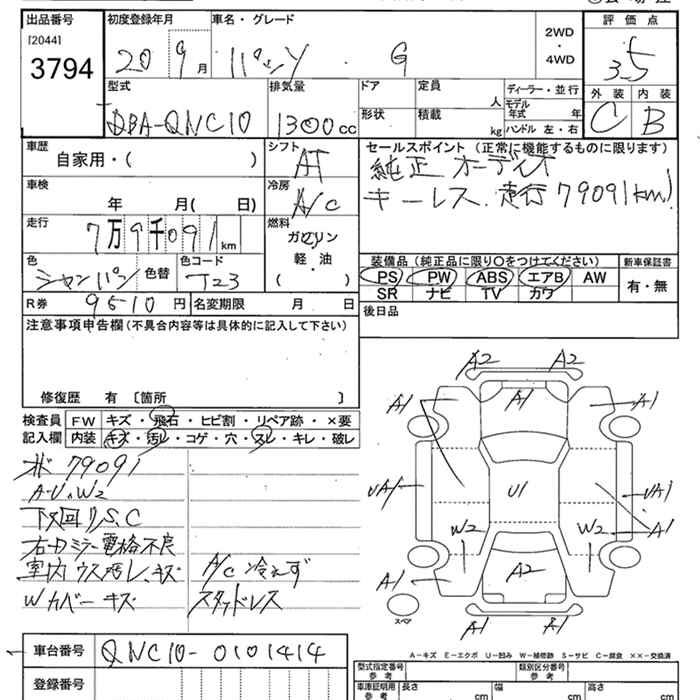 出品番号
[2044]
3794
初度登録年月
20 9月
車名・グレード
パッソ G
2WD
・
4WD
評価点
3.5
型式
DBA-QNC10
排気量
1300cc
ドア
形状
定員
人
積載
kg
ディーラー・並行
モデル年式 年
ハンドル 左・右
外装 内装
C B
車歴
自家用・( )
シフト
AT
車検
年 月( 日)
冷房
A/C
走行
7万9千091km
燃料
ガソリン
軽・油
( )
色
シャンパン
色替
色コード
T23
R券 9510円
名変期限 月 日
セールスポイント (正常に機能するものに限ります)
純正オーディオ
キーレス.走行79091km!
装備品(純正品に限り○をつけてください)
PS PW ABS エアB AW
SR ナビ TV カワ
新車保証書
有・無
後日品
注意事項申告欄(不具合内容等は具体的に記入して下さい)
修復歴 有 〔箇所 〕
検査員記入欄
FW キズ・飛石・ヒビ割・リペア跡・×要
内装 キズ・汚レ・コゲ・穴・スレ・キレ・破レ
79091
A・U.W2
下回り S.C
右ドアミラー電格不良
室内 ウス汚レ、キズ
Wカバーキズ
A/C 冷えず
スタッドレス
A2 A2
A1 A1 A1
UA1 U1 UA1
W2 W2 A1
A1 A2
A1 A1
スペア
A-キズ E-エクボ U-凹み W-補修跡 S-サビ C-腐食 ××-交換済
車台番号 QNC10-0101414
登録番号
型式指定番号
類別区分番号
車庫証明用参考
長さ cm
幅 cm
高さ cm